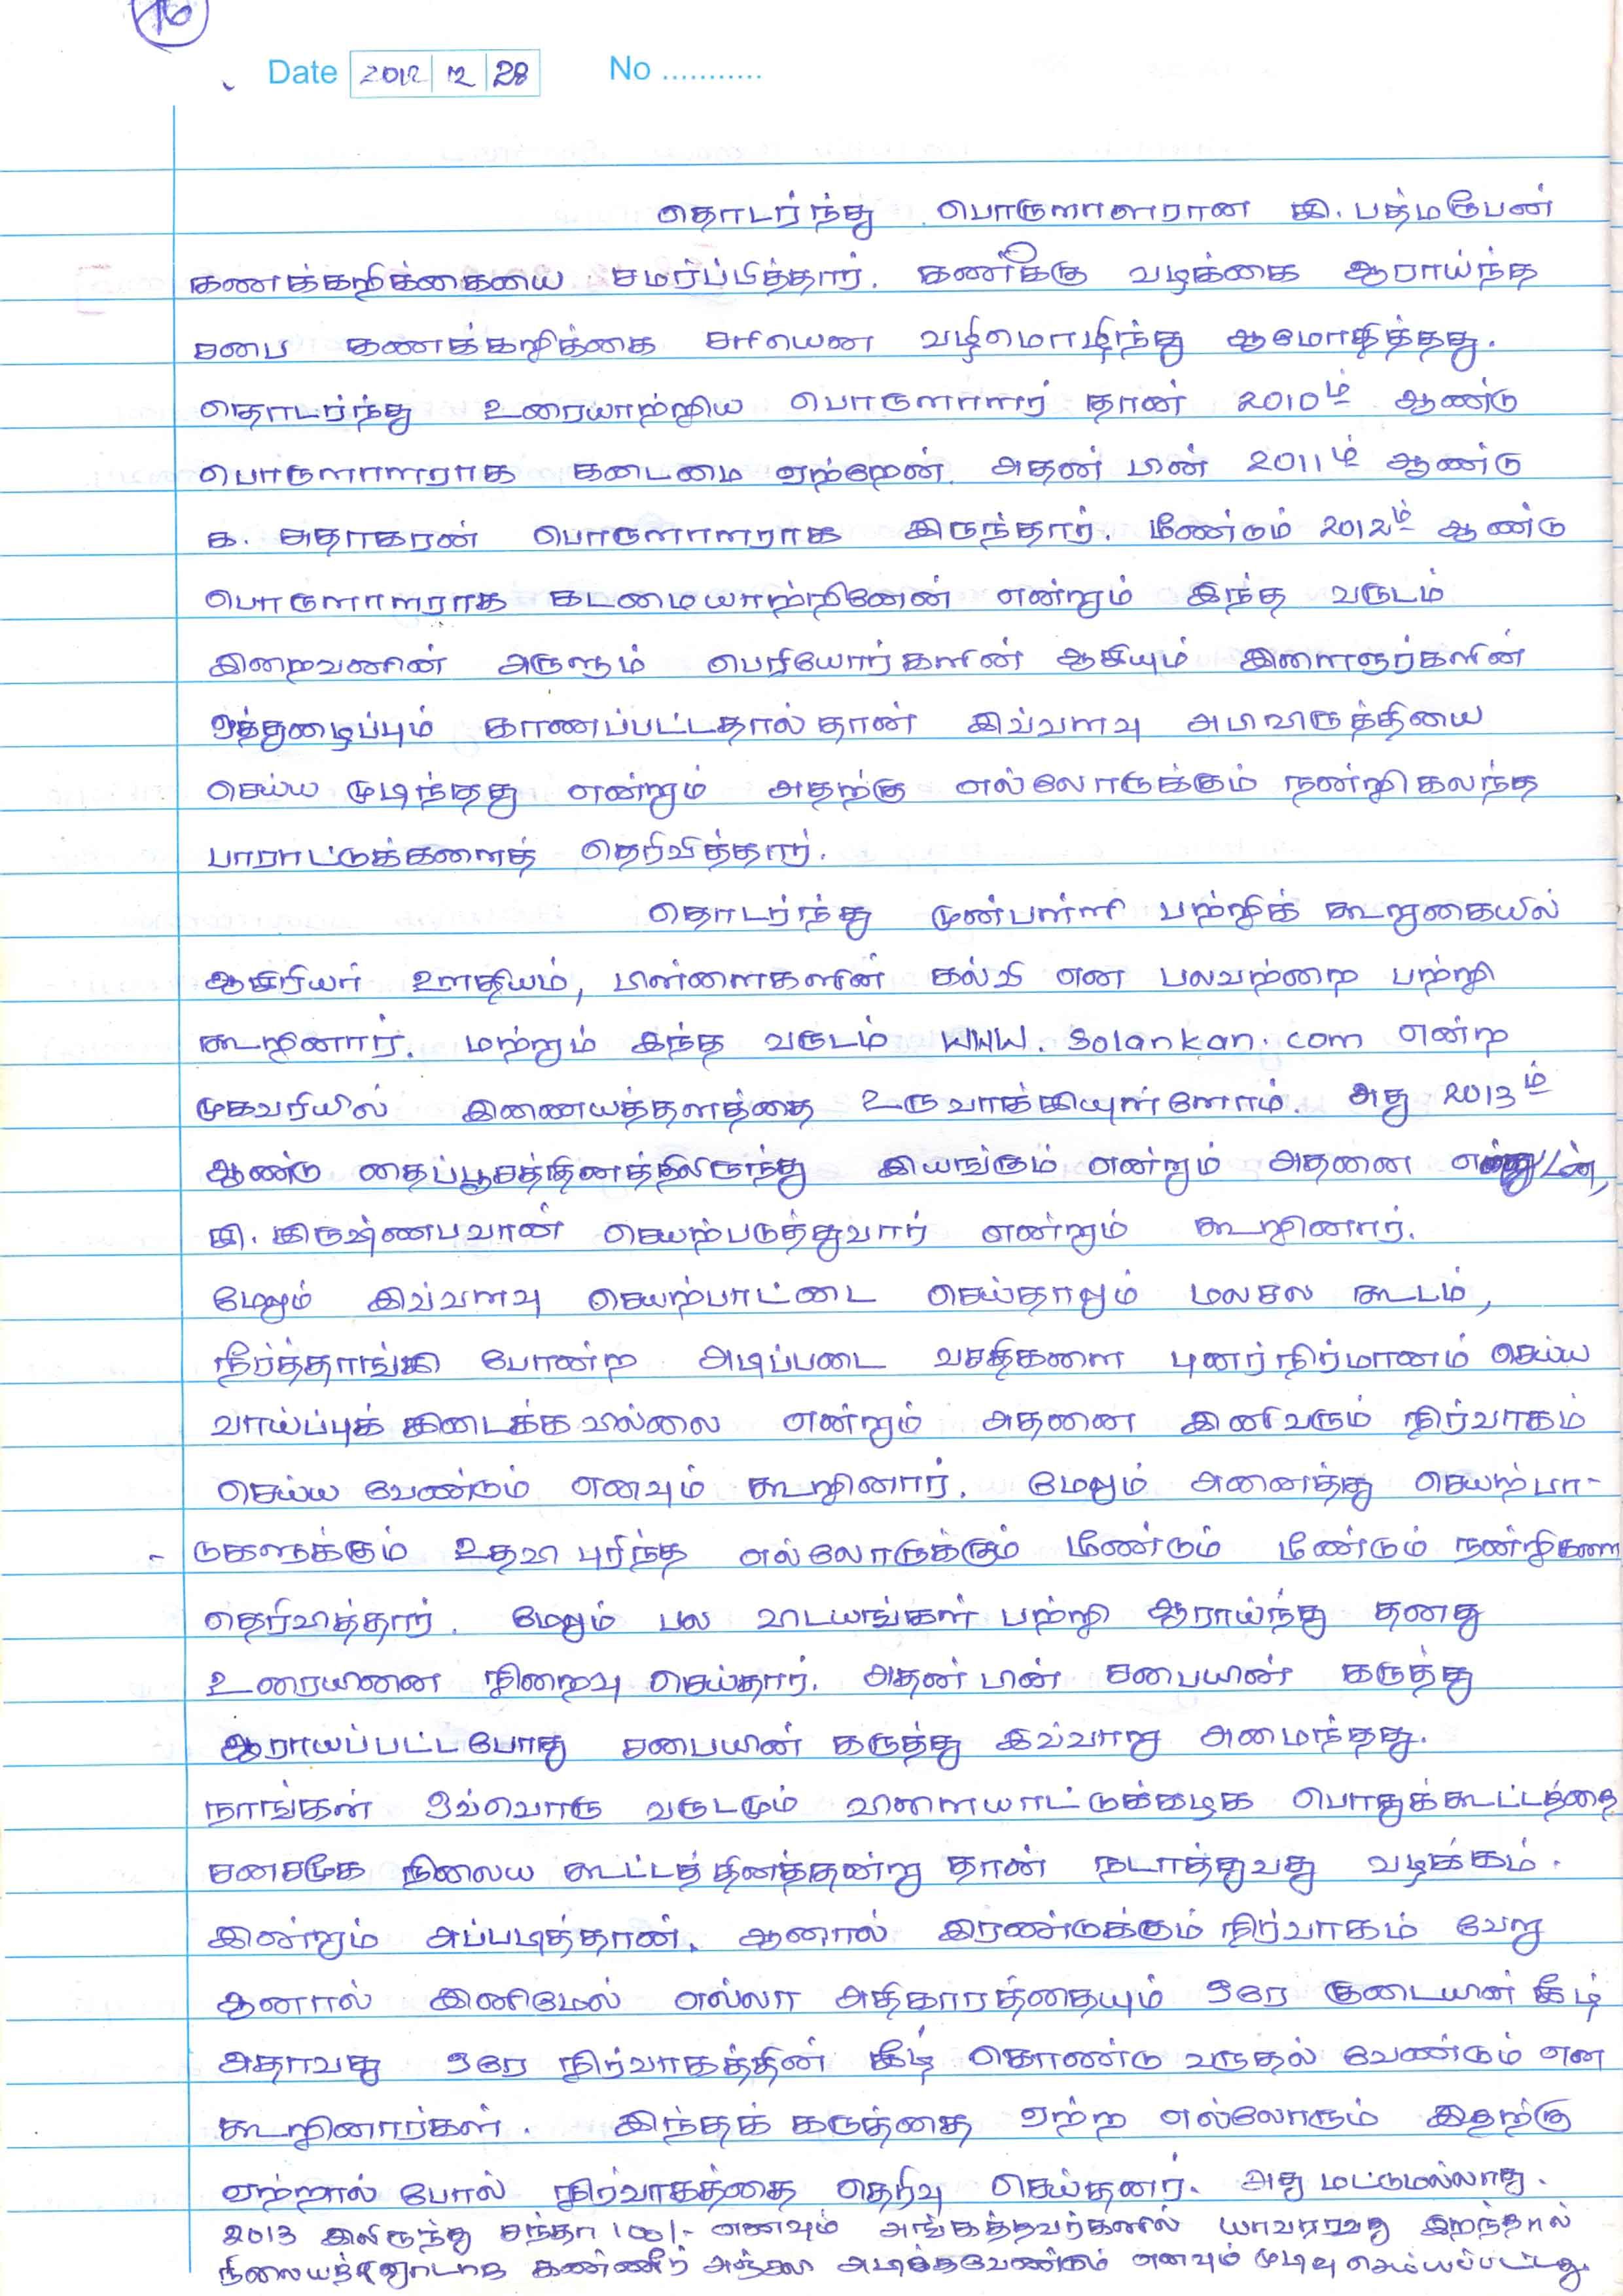 16
Date 2012 12 28 No ...........
தொடர்ந்து பொருளாளரான இ. பத்மரூபேன்
கணக்கறிக்கையை சமர்ப்பித்தார். கணக்கு வழக்கை ஆராய்ந்த
சபை கணக்கறிக்கை சரியென வழிமொழிந்து ஆமோதித்தது.
தொடர்ந்து உரையாற்றிய பொருளாளர் தான் 2010ம் ஆண்டு
பொருளாளராக கடைமை ஏற்றேன். அதன் பின் 2011ம் ஆண்டு
க. சுதாகரன் பொருளாளராக இருந்தார். மீண்டும் 2012ம் ஆண்டு
பொருளாளராக கடமையாற்றினேன் என்றும் இந்த வருடம்
இறைவனின் அருளும் பெரியோர்களின் ஆசியும் இளைஞர்களின்
ஒத்துழைப்பும் காணப்பட்டதால்தான் இவ்வளவு அபிவிருத்தியை
செய்ய முடிந்தது என்றும் அதற்கு எல்லோருக்கும் நன்றிகலந்த
பாராட்டுக்களைத் தெரிவித்தார்.
தொடர்ந்து முன்பள்ளி பற்றிக் கூறுகையில்
ஆசிரியர் ஊதியம், பிள்ளைகளின் கல்வி என பலவற்றை பற்றி
கூறினார். மற்றும் இந்த வருடம் www. Solankan. com என்ற
முகவரியில் இணையத்தளத்தை உருவாக்கியுள்ளோம். அது 2013ம்
ஆண்டு தைப்பூசத்தினத்திலிருந்து இயங்கும் என்றும் அதனை
இ. கிருஷ்ணபவான் செயற்படுத்துவார் என்றும் கூறினார்.
மேலும் இவ்வளவு செயற்பாட்டை செய்தாலும் மலசல கூடம்,
நீர்த்தாங்கி போன்ற அடிப்படை வசதிகளை புனர்நிர்மானம் செய்ய
வாய்ப்புக் கிடைக்கவில்லை என்றும் அதனை இனிவரும் நிர்வாகம்
செய்ய வேண்டும் எனவும் கூறினார். மேலும் அனைத்து செயற்பா-
- டுகளுக்கும் உதவி புரிந்த எல்லோருக்கும் மீண்டும் மீண்டும் நன்றிகளை
தெரிவித்தார். மேலும் பல விடயங்கள் பற்றி ஆராய்ந்து தனது
உரையினை நிறைவு செய்தார். அதன் பின் சபையின் கருத்து
ஆராயப்பட்டபோது சபையின் கருத்து இவ்வாறு அமைந்தது.
நாங்கள் ஒவ்வொரு வருடமும் விளையாட்டுக்கழக பொதுக்கூட்டத்தை
சனசமூக நிலைய கூட்டத்தினத்தன்று தான் நடாத்துவது வழக்கம்.
இன்றும் அப்படித்தான். ஆனால் இரண்டுக்கும் நிர்வாகம் வேறு
ஆனால் இனிமேல் எல்லா அதிகாரத்தையும் ஒரே குடையின் கீழ்
அதாவது ஒரே நிர்வாகத்தின் கீழ் கொண்டு வருதல் வேண்டும் என
கூறினார்கள். இந்தக் கருத்தை ஏற்ற எல்லோரும் இதற்கு
ஏற்றால் போல் நிர்வாகத்தை தெரிவு செய்தனர். அது மட்டுமல்லாது.
2013 இலிருந்து சந்தா 100/- எனவும் அங்கத்தவர்களில் யாவராவது இறந்தால்
நிலையத்தினூடாக கண்ணீர் அஞ்சலி அடிக்கவேண்டும் எனவும் முடிவு செய்யப்பட்டது.